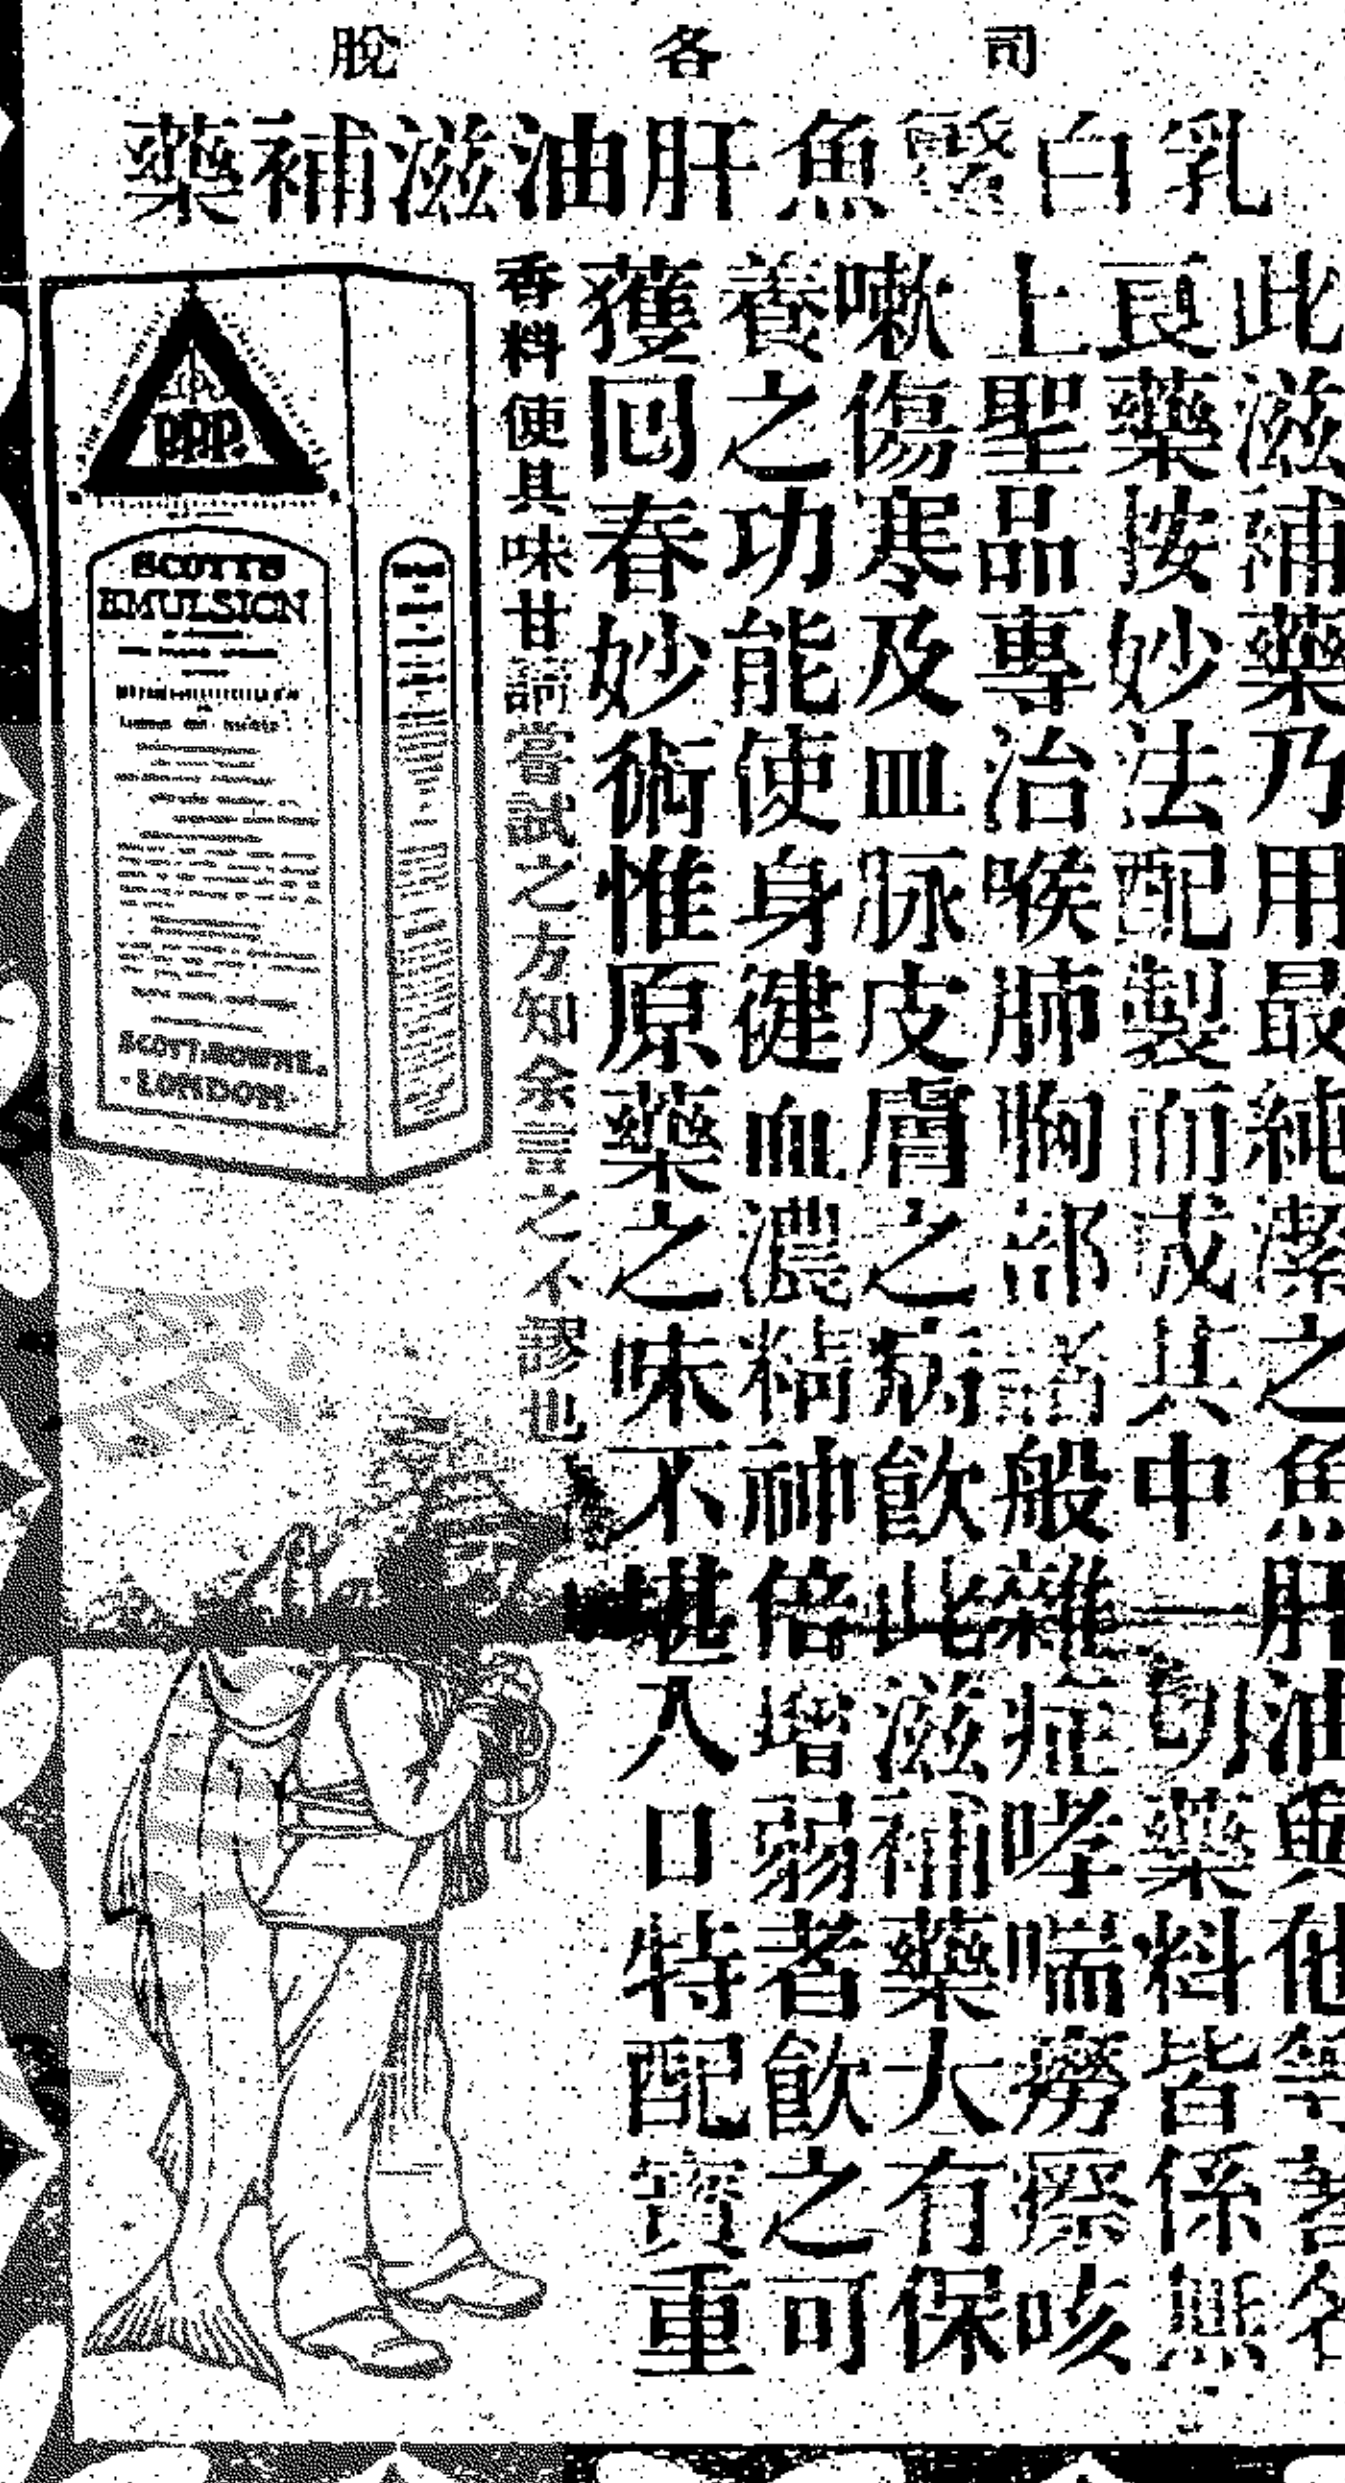 司各脫
乳白鰵魚肝油滋補藥
此滋補藥乃用最純潔之魚肝油與他等著名
良藥按妙法配製而成其中一切藥料皆係無
上聖品專治喉肺胸部諸般雜症哮喘癆瘵咳
嗽傷寒及血脉皮膚之病飲此滋補藥大有保
養之功能使身健血濃精神倍增弱者飲之可
獲回春妙術惟原藥之味不堪入口特配寶重
香料使其味甘請嘗試之方知余言之不謬也
P.P.P.
SCOTT'S
EMULSION
SCOTT & BOWNE
LONDON